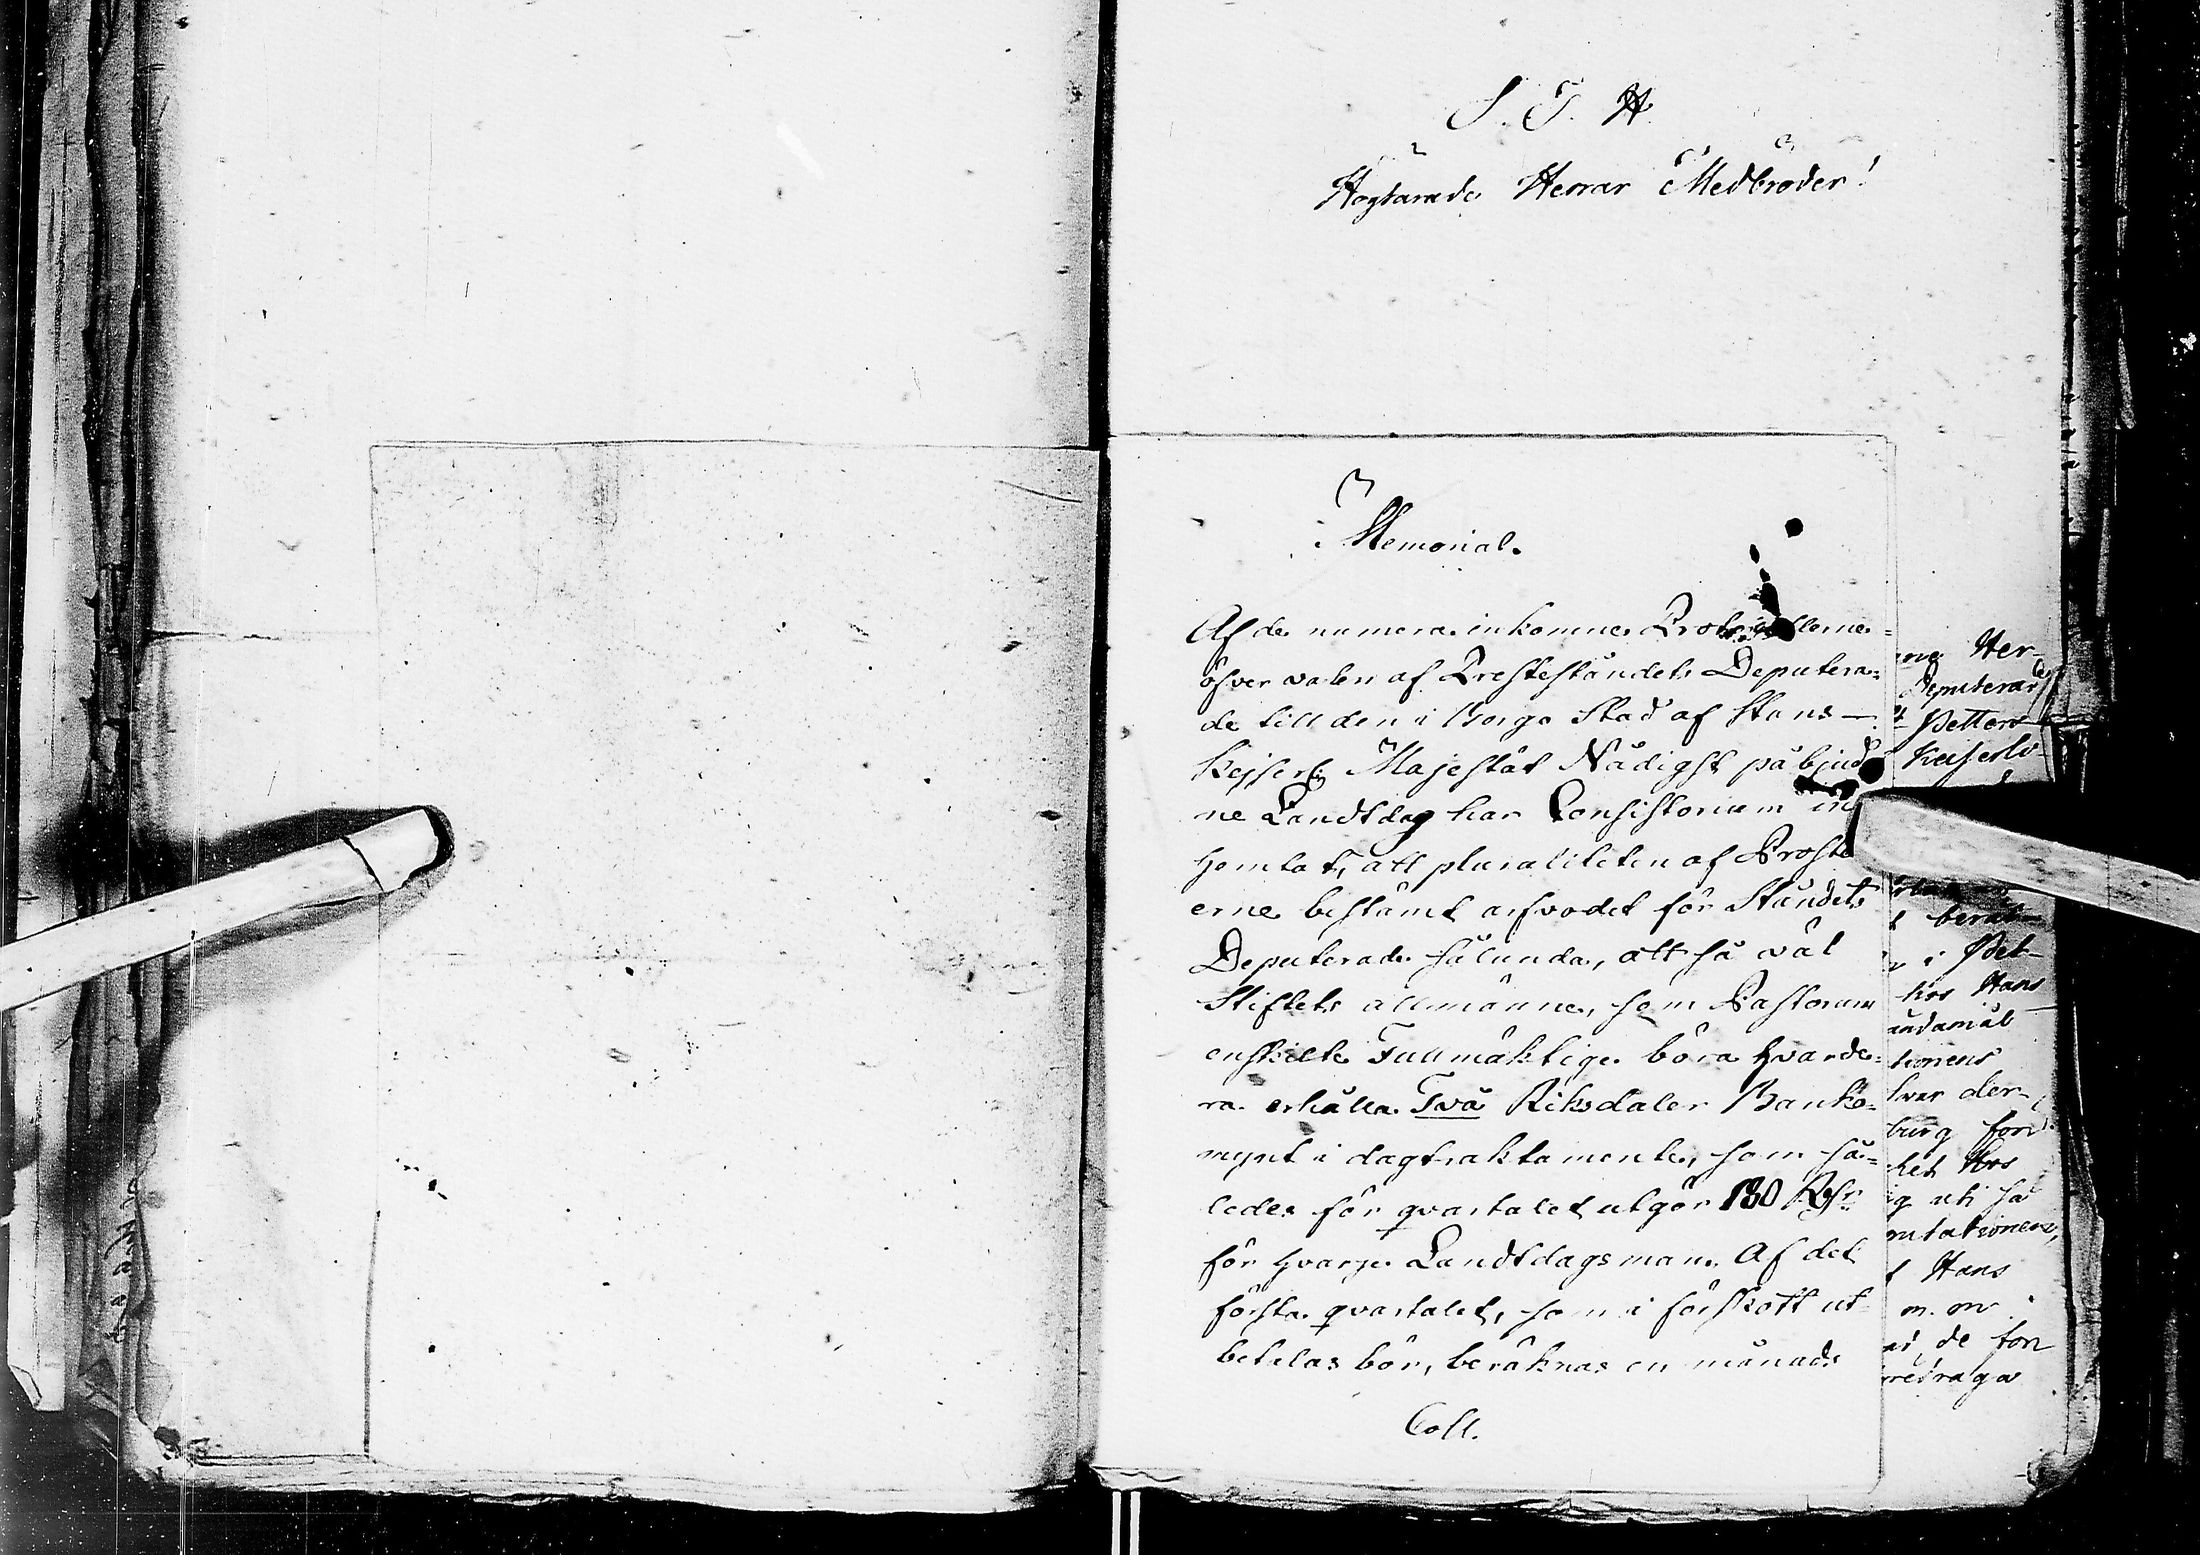 S. T. H
Högtärade Herrar Medbröder!
Memorial.
Af de numera inkomne
öfver valen af Presteståndets Deputera=
de till den i Borgo Stad af Hans
Kejserl. Majestät Nådigst påbjud
ne Landtdag har Consistorium in
hemtat, att pluraliteten af Proste
erne bestämt arfvodet för Ståndets
Deputerade sålunda, att så väl
Stiftets allmänne, som Pastorum
enskilte Fullmäktige böra hvarde=
ra erhålla Två Riksdaler Banko=
mynt i dagtraktamente, som så=
ledes för qvartalet utgör 180 Rdr
för hvarje Landtdagsman. Af det
första qvartalet, som i förskott ut
betalas bör, beräknas en månads
Coll.
ne Her-
Deputerade
Petters
Kejserli-
t beral-
i Pet-
hos Hans
ändamål
tionens
lver der-
burg för
het Hos
ig uti så
mtationen,
f Hans
m. m
de för
redraga